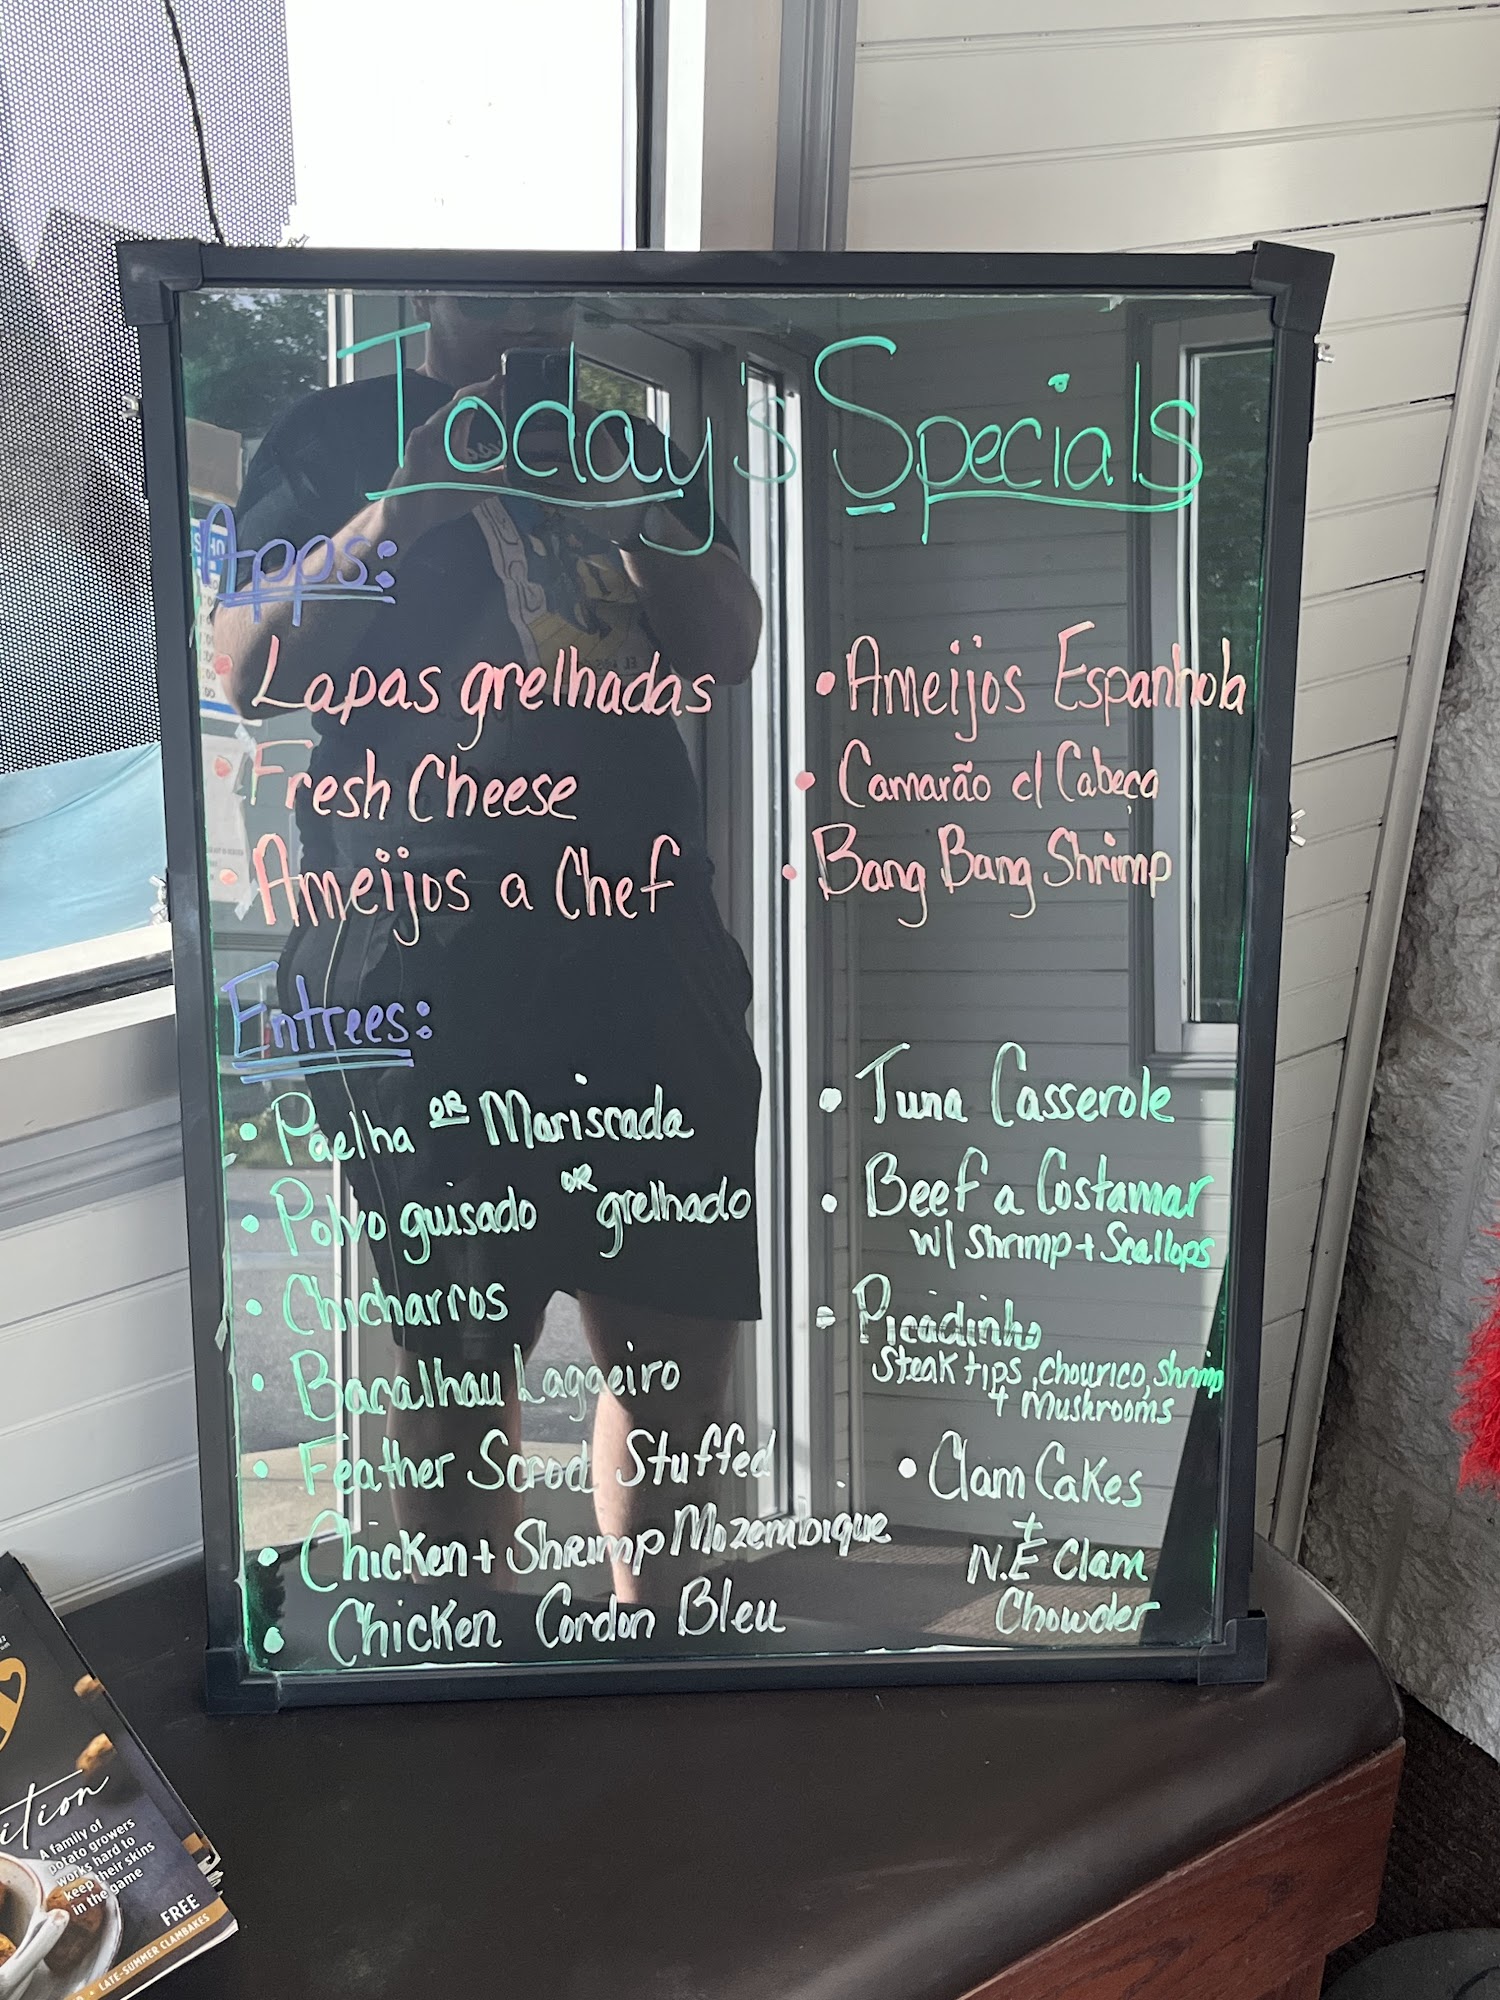 Today's Specials
Apps:
• Lapas grelhadas
• Fresh Cheese
• Ameijos a Chef
• Ameijos Espanhola
• Camarão c/ Cabeça
• Bang Bang Shrimp
Entrees:
• Paelha OR Mariscada
• Polvo guisado OR grelhado
• Chicharros
• Bacalhau Lagaeiro
• Feather Scrod Stuffed
• Chicken + Shrimp Mozembique
• Chicken Cordon Bleu
• Tuna Casserole
• Beef a Costamar
w/ Shrimp + Scallops
• Picadinho
Steak tips, chourico, shrimp
+ Mushrooms
• Clam Cakes
+
N.E Clam
Chowder
ition
A family of
potato growers
works hard to
keep their skins
in the game
FREE
• LATE-SUMMER CLAMBAKES